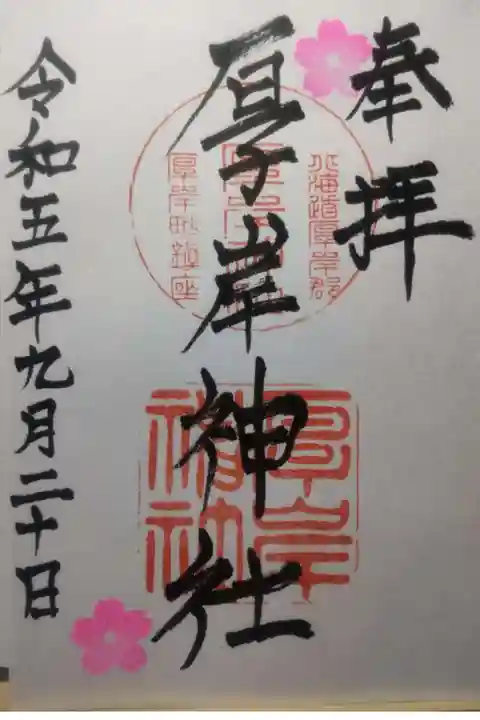 奉拝
北海道厚岸郡
厚岸神社
厚岸町鎮座
厚岸
神社
令和五年九月二十日